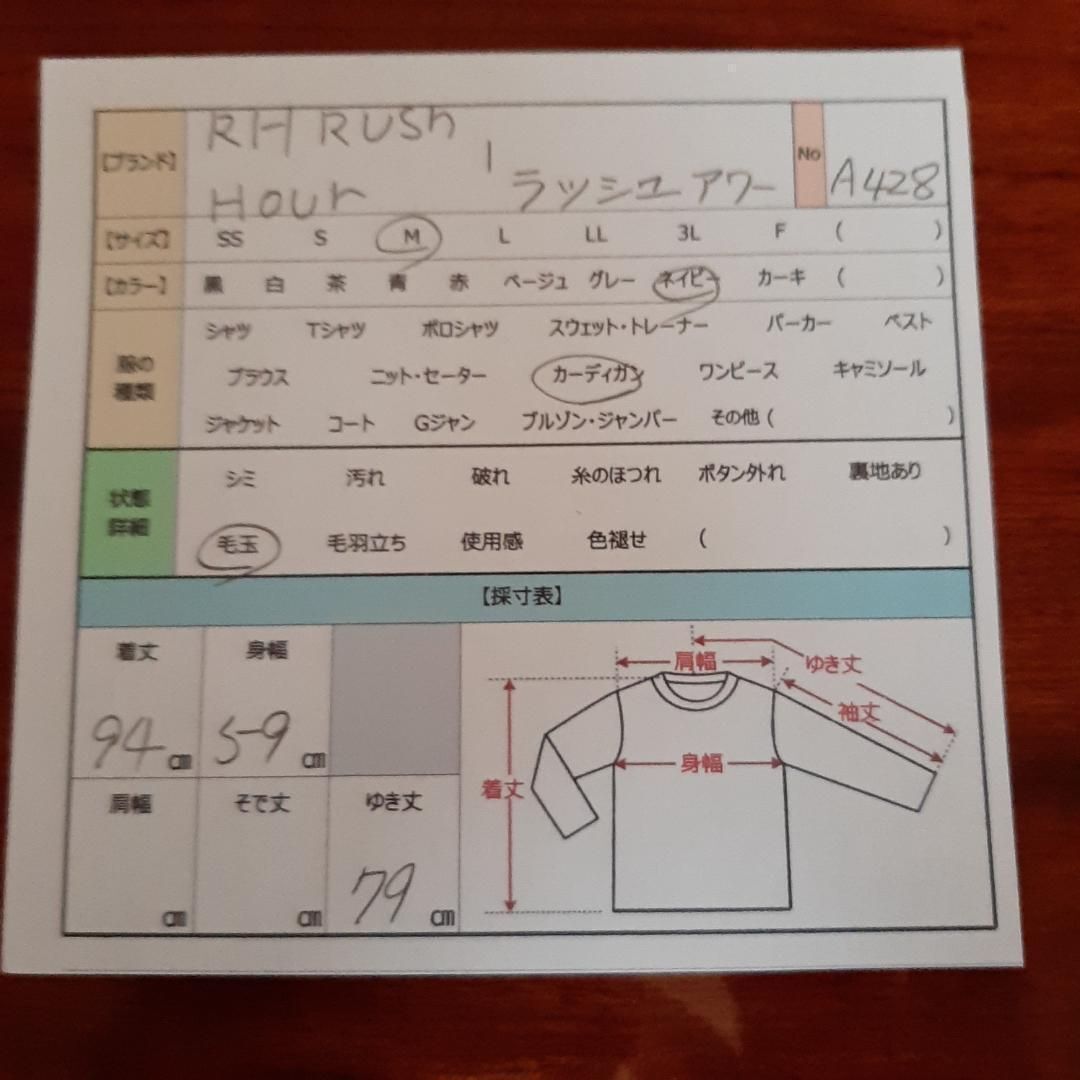 【ブランド】 RH RUSh | No
HOUr ラッシュアワー A428
【サイズ】 SS S M L LL 3L F ( )
【カラー】 黒 白 茶 青 赤 ベージュ グレー ネイビー カーキ ( )
シャツ Tシャツ ポロシャツ スウェット・トレーナー パーカー ベスト
服の
種類
ブラウス ニット・セーター カーディガン ワンピース キャミソール
ジャケット コート Gジャン ブルゾン・ジャンパー その他 ( )
状態
詳細
シミ 汚れ 破れ 糸のほつれ ボタン外れ 裏地あり
毛玉 毛羽立ち 使用感 色褪せ ( )
【採寸表】
着丈 身幅
94 cm 59 cm
肩幅 そで丈 ゆき丈
cm cm 79 cm
肩幅 ゆき丈
袖丈
身幅
着丈